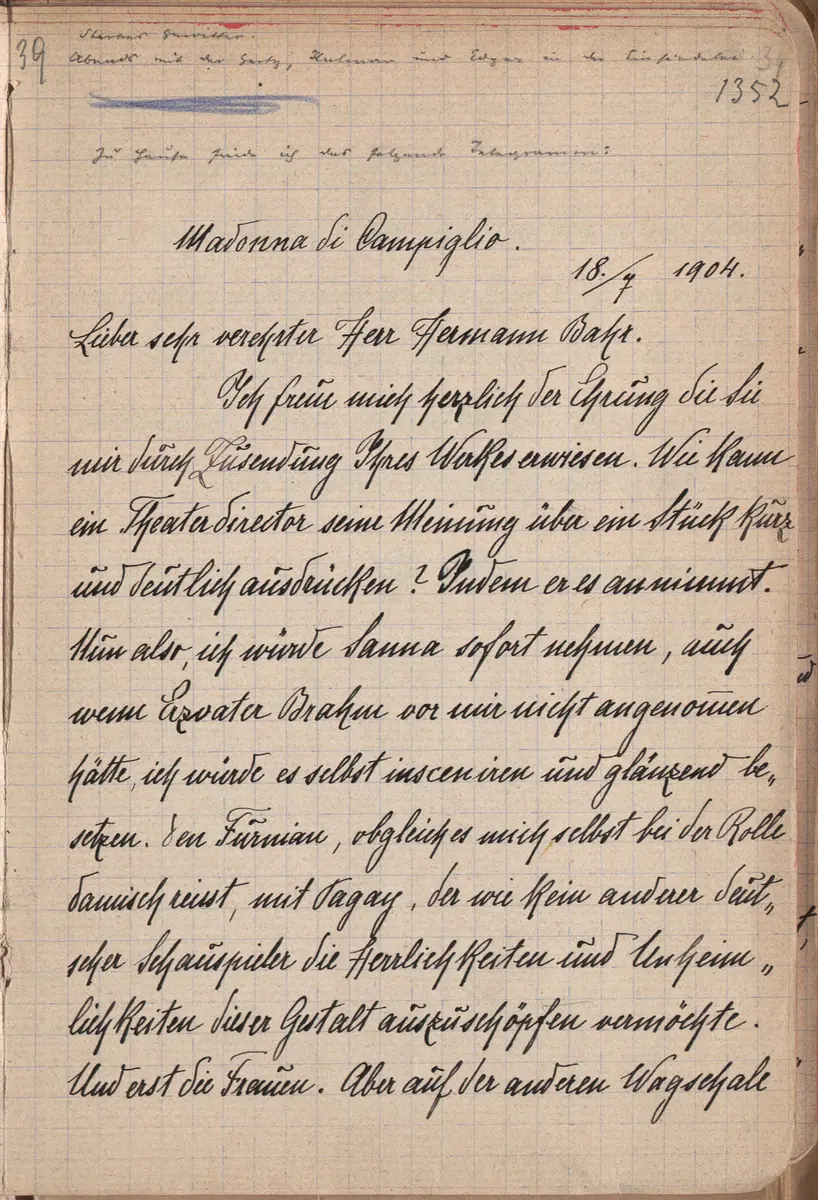 39
Starkes Gewitter.
Abends mit der
und Edgar in der
1352
Zu Hause finde ich das folgende Telegramm:
Madonna di Campiglio.
18./7 1904.
Lieber sehr verehrter Herr Hermann Bahr.
Ich freue mich herzlich der Ehrung die Sie
mir durch Zusendung Ihres Werkes erwiesen. Wie kann
ein Theaterdirector seine Meinung über ein Stück kurz
und deutlich ausdrücken? Indem er es annimmt.
Nun also, ich würde Sanna sofort nehmen, auch
wenn Erzvater Brahm vor mir nicht angenom̅en
hätte, ich würde es selbst insceniren und glänzend be„
setzen. Den Furnian, obgleich es mich selbst bei der Rolle
damisch reisst, mit Pagay, der wie kein anderer deut„
scher Schauspieler die Herrlichkeiten und Unheim„
lichkeiten dieser Gestalt auszuschöpfen vermöchte.
Und erst die Frauen. Aber auf der anderen Wagschale